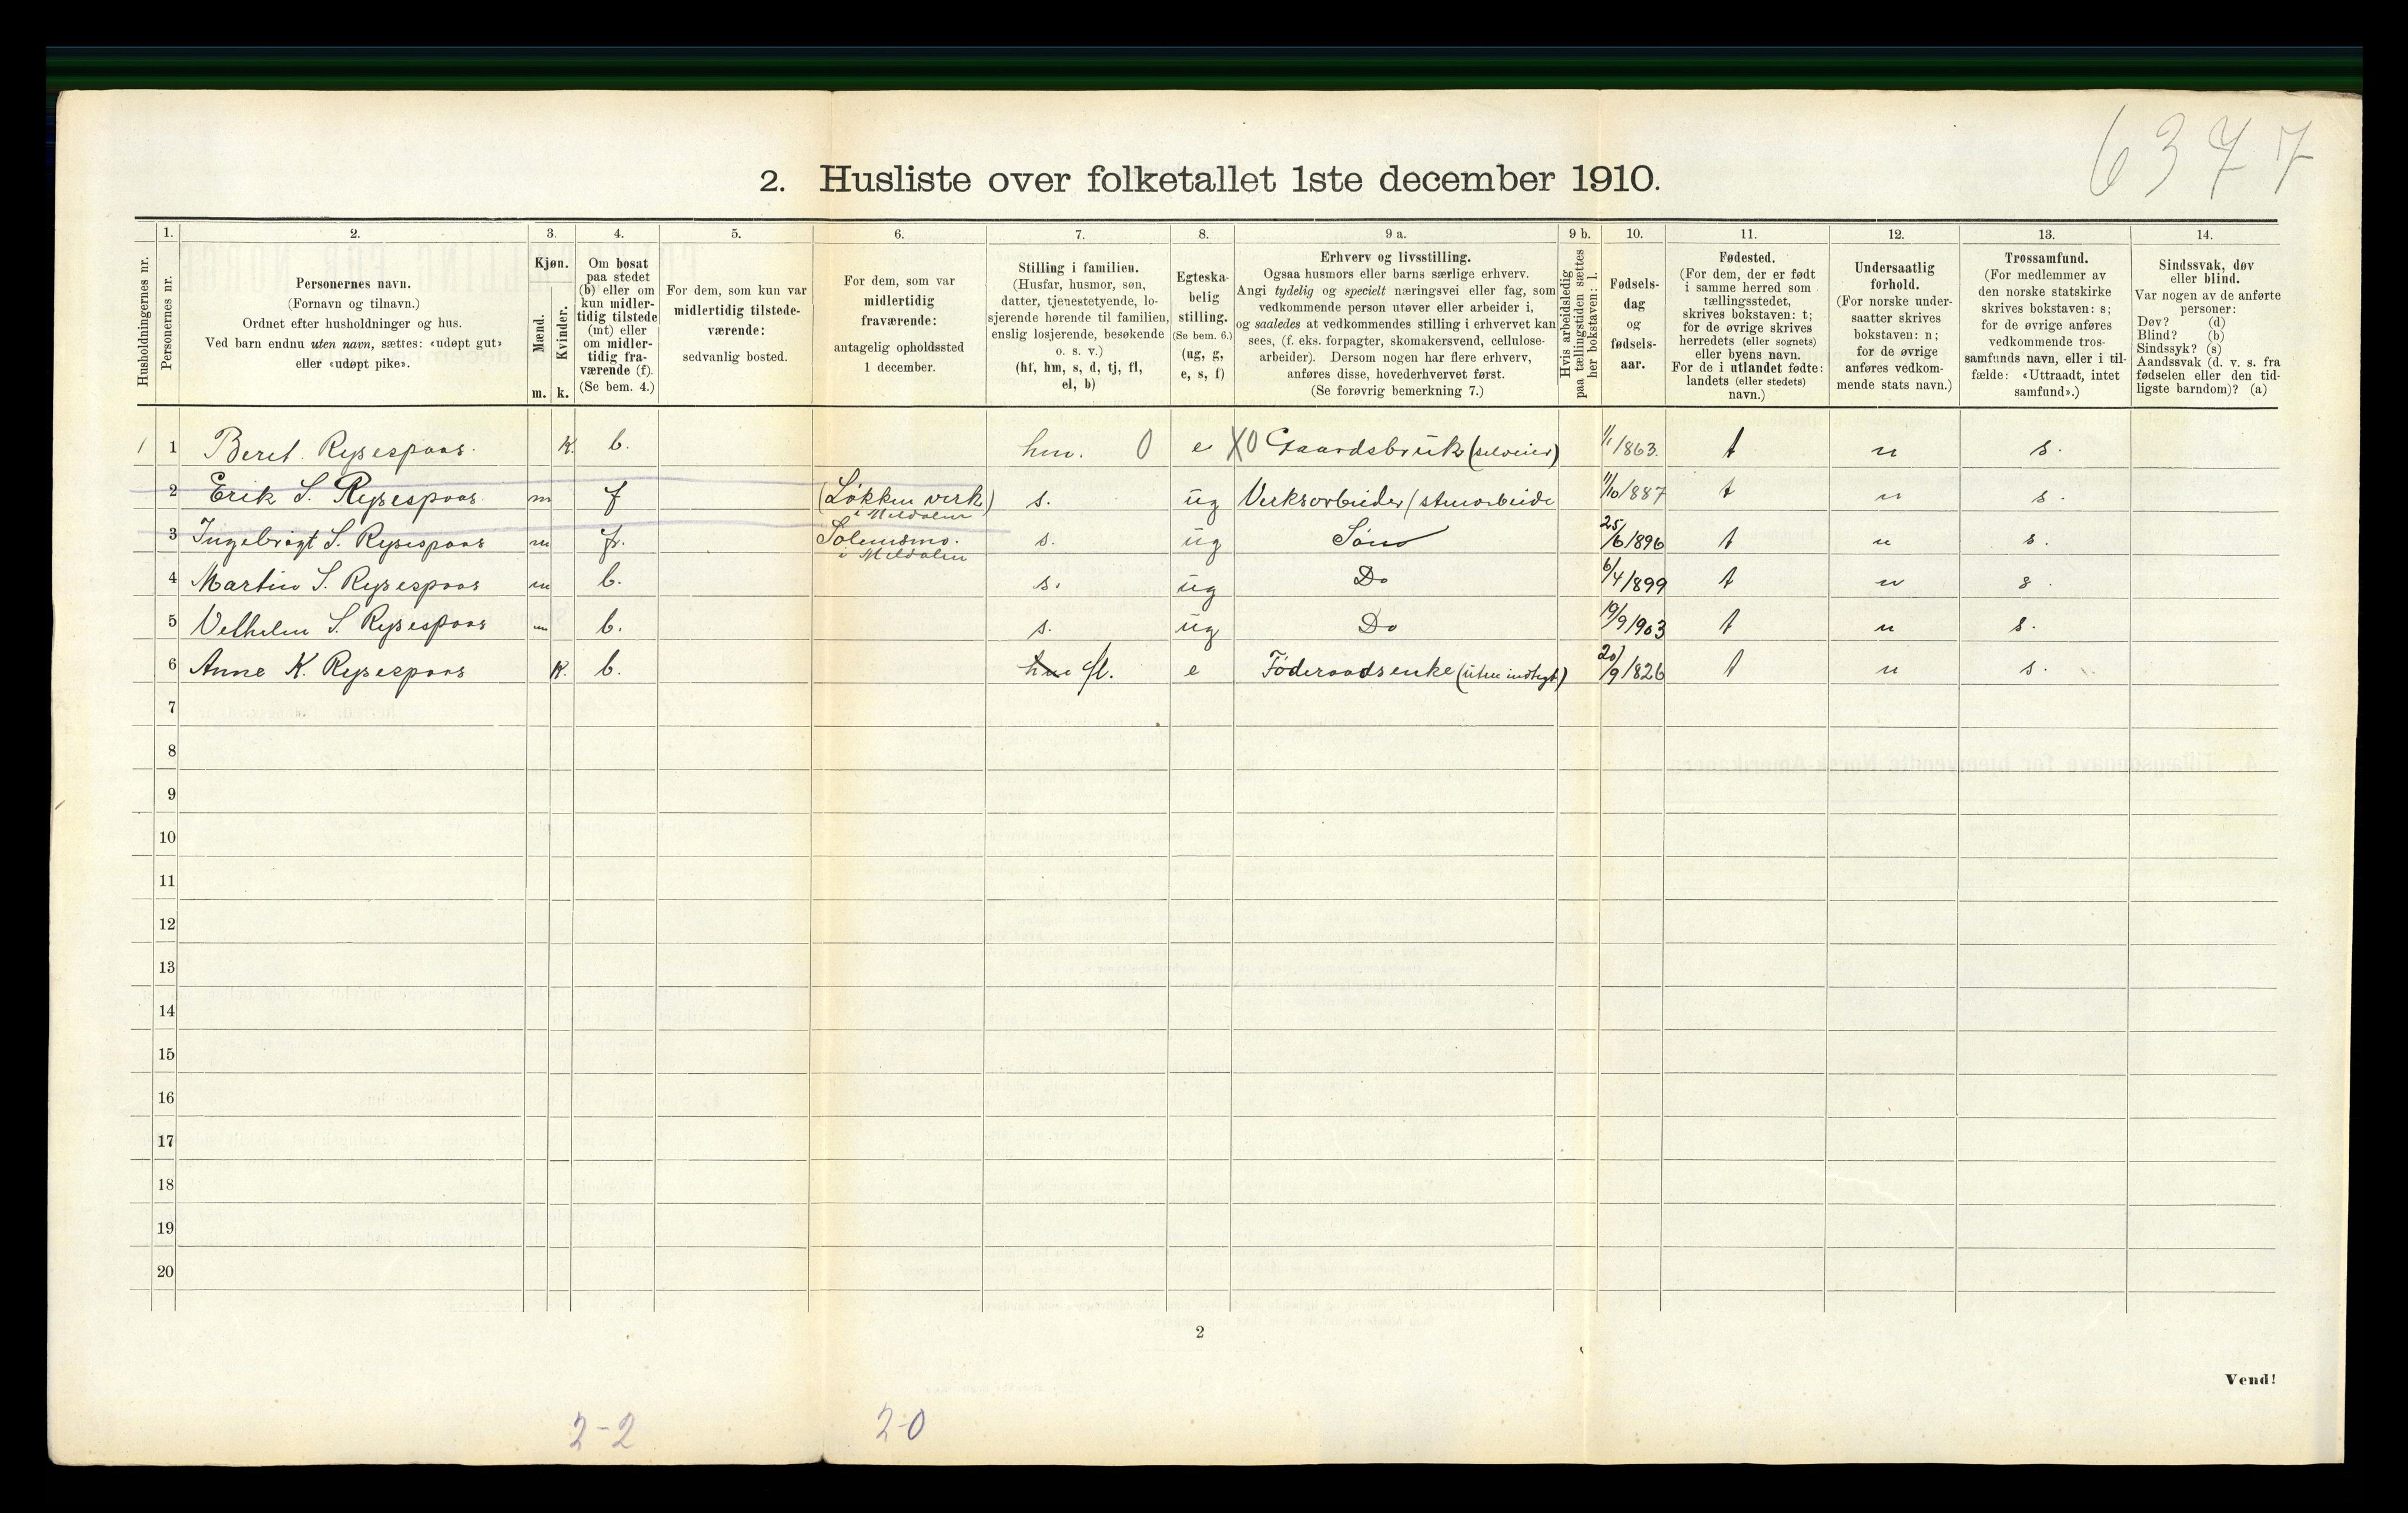 6377
2. Husliste over folketallet 1ste december 1910.
Husholdningernes nr.
1.
Personernes nr.
2.
Personernes navn.
(Fornavn og tilnavn.)
Ordnet efter husholdninger og hus.
Ved barn endnu uten navn, sættes: «udøpt gut»
eller «udøpt pike».
3.
Kjøn.
Mænd.
Kvinder.
m. k.
4.
Om bosat
paa stedet
(b) eller om
kun midler-
tidig tilstede
(mt) eller
om midler-
tidig fra-
værende (f).
(Se bem. 4.)
5.
For dem, som kun var
midlertidig tilstede-
værende:
sedvanlig bosted.
6.
For dem, som var
midlertidig
fraværende:
antagelig opholdssted
1 december.
7.
Stilling i familien.
(Husfar, husmor, søn,
datter, tjenestetyende, lo-
sjerende hørende til familien,
enslig losjerende, besøkende
o. s. v.)
(hf, hm, s, d, tj, fl,
el, b)
8.
Egteska-
belig
stilling.
(Se bem. 6.)
(ug, g,
e, s, f)
9 a.
Erhverv og livsstilling.
Ogsaa husmors eller barns særlige erhverv.
Angi tydelig og specielt næringsvei eller fag, som
vedkommende person utøver eller arbeider i,
og saaledes at vedkommendes stilling i erhvervet kan
sees, (f. eks. forpagter, skomakersvend, cellulose-
arbeider). Dersom nogen har flere erhverv,
anføres disse, hovederhvervet først.
(Se forøvrig bemerkning 7.)
9 b.
Hvis arbeidsledig
paa tællingstiden sættes
her bokstaven: l.
10.
Fødsels-
dag
og
fødsels-
aar.
11.
Fødested.
(For dem, der er født
i samme herred som
tællingsstedet,
skrives bokstaven: t;
for de øvrige skrives
herredets (eller sognets)
eller byens navn.
For de i utlandet fødte:
landets (eller stedets)
navn.)
12.
Undersaatlig
forhold.
(For norske under-
saatter skrives
bokstaven: n;
for de øvrige
anføres vedkom-
mende stats navn.)
13.
Trossamfund.
(For medlemmer av
den norske statskirke
skrives bokstaven: s;
for de øvrige anføres
vedkommende tros-
samfunds navn, eller i til-
fælde: «Uttraadt, intet
samfund».)
14.
Sindssvak, døv
eller blind.
Var nogen av de anførte
personer:
Døv? (d)
Blind? (b)
Sindssyk? (s)
Aandssvak (d. v. s. fra
fødselen eller den tid-
ligste barndom)? (a)
1 1 Beret Rysespaas. K. b. hm. 0 e X0 Gaardsbruk (selveier) 1/1 1863. t n s.
2 Erik S. Rysespaas m f (Løkken verk) i Meldalen s. ug Verksarbeider (stenarbeide 11/10 1887 t n s.
3 Ingebrigt S. Rysespaas m f. Solemsmo. i Meldalen s. ug Søn 25/6 1896 t n s.
4 Martin S. Rysespaas m b. s. ug Do 6/4 1899 t n s.
5 Velhelm S. Rysespaas m b. s. ug Do 19/9 1903 t n s.
6 Anne K. Rysespaas K. b. hm fl. e Føderaadsenke (uten indtegt) 20/9 1826 t n s.
7
8
9
10
11
12
13
14
15
16
17
18
19
20
2
Vend!
2-2 2-0